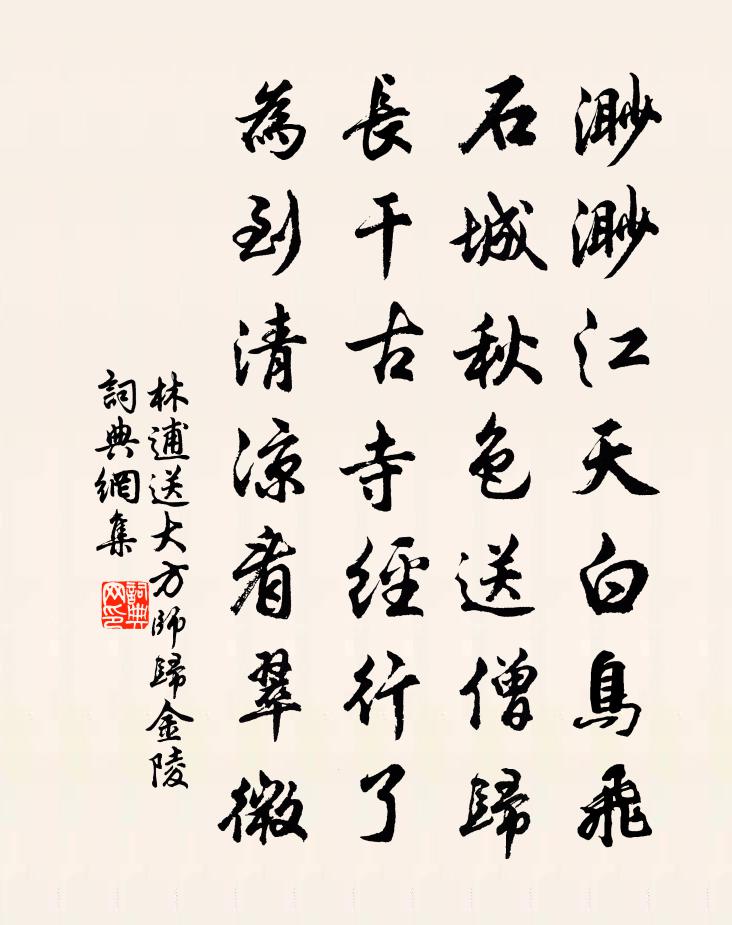 渺渺江天白鳥飛
石城秋色送僧歸
長干古寺經行了
為到清涼看翠微
林逋送大方師歸金陵
詞典網集
詞典網印